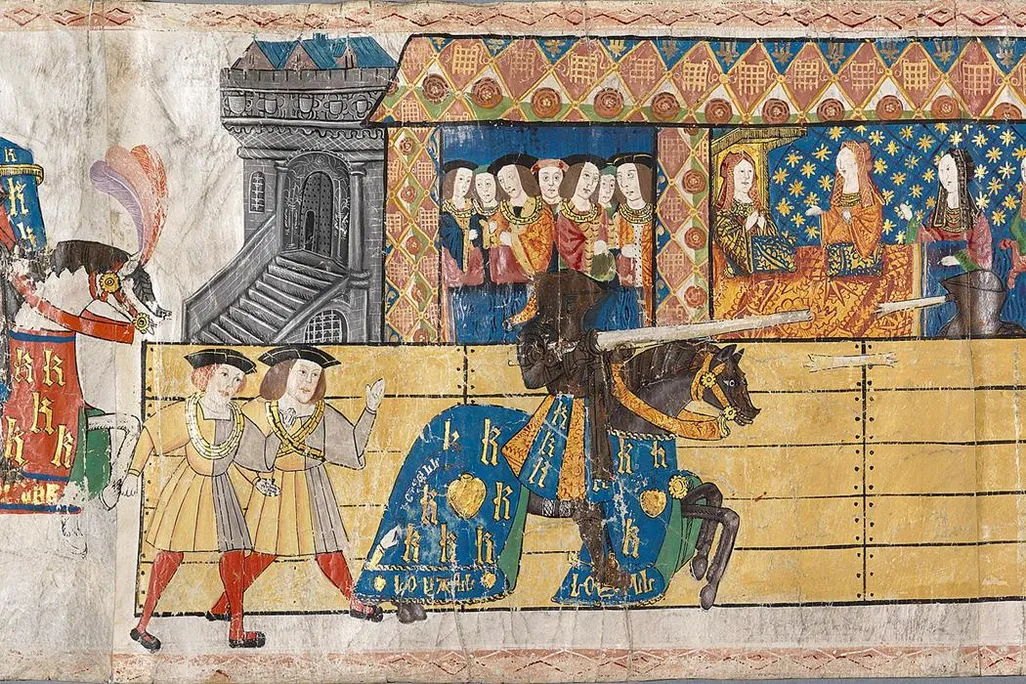 k
k
k k
k
k k k
k k
k k
k k
k k k
k
k
k
k k
k
LOYALL
LOYALL